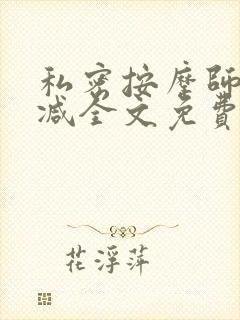 私密按摩師
减全文免費
花浮萍